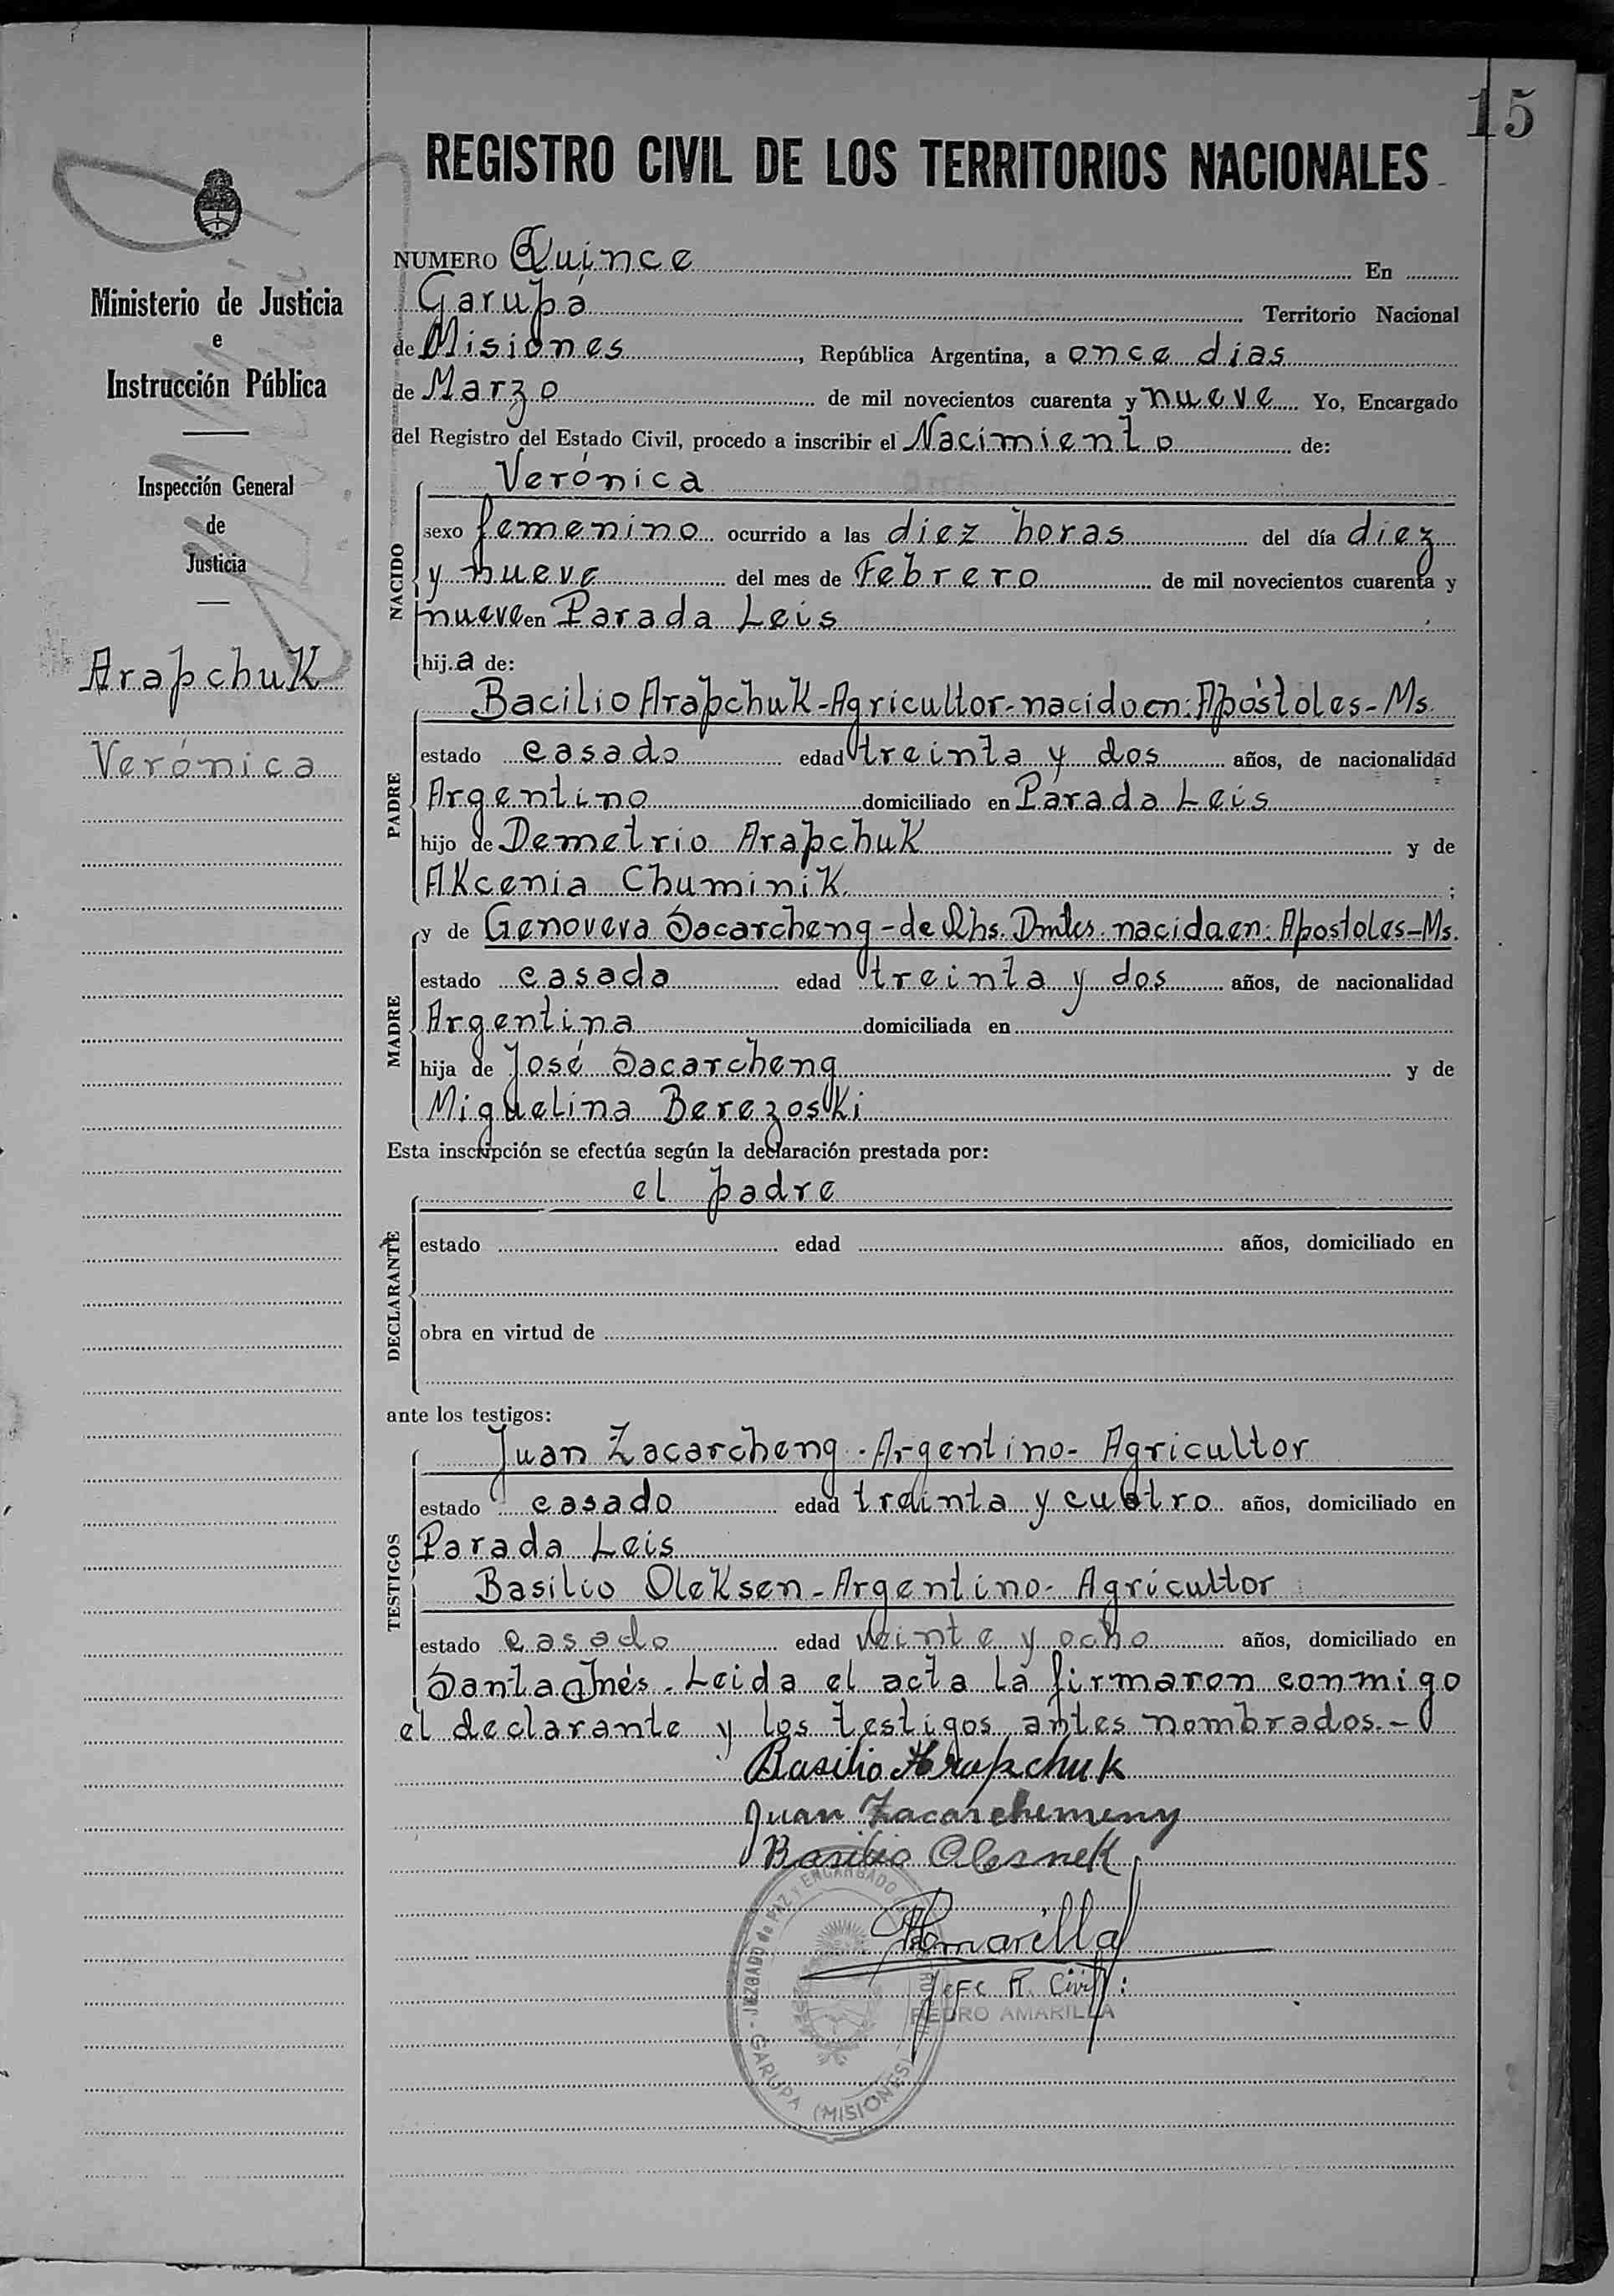 15
REGISTRO CIVIL DE LOS TERRITORIOS NACIONALES
Ministerio de Justicia
e
Instrucción Pública
Inspección General
de
Justicia
Arapchuk
Verónica
NUMERO Quince En
Garupá Territorio Nacional
de Misiones, República Argentina, a once dias
de Marzo de mil novecientos cuarenta y nueve Yo, Encargado
del Registro del Estado Civil, procedo a inscribir el Nacimiento de:
NACIDO
Verónica
sexo femenino ocurrido a las diez horas del día diez
y nueve del mes de Febrero de mil novecientos cuarenta y
nueve en Parada Leis
hij.a de:
PADRE
Bacilio Arapchuk-Agricultor-nacido en: Apóstoles-Ms.
estado casado edad treinta y dos años, de nacionalidad
Argentino domiciliado en Parada Leis
hijo de Demetrio Arapchuk y de
Akcenia Chuminik. ;
MADRE
y de Genoveva Sacarcheng-de Qhs. Dmtcs. nacida en: Apostoles-Ms.
estado casada edad treinta y dos años, de nacionalidad
Argentina domiciliada en
hija de José Sacarcheng y de
Miguelina Berezoski
Esta inscripción se efectúa según la declaración prestada por:
DECLARANTE
el padre
estado edad años, domiciliado en
obra en virtud de
ante los testigos:
TESTIGOS
Juan Zacarcheng-Argentino-Agricultor
estado casado edad treinta y cuatro años, domiciliado en
Parada Leis
Basilio Oleksen-Argentino-Agricultor
estado casado edad veinte y ocho años, domiciliado en
Santa Inés. Leida el acta la firmaron conmigo
el declarante y los testigos antes nombrados.-
Basilio Arapchuk
Juan Zacarchemeny
Basilio Olesnek
PAmarilla
Jefe R. Civil:
PEDRO AMARILLA
JUZGADO de PAZ y ENCARGADO
GARUPA (MISIONES)